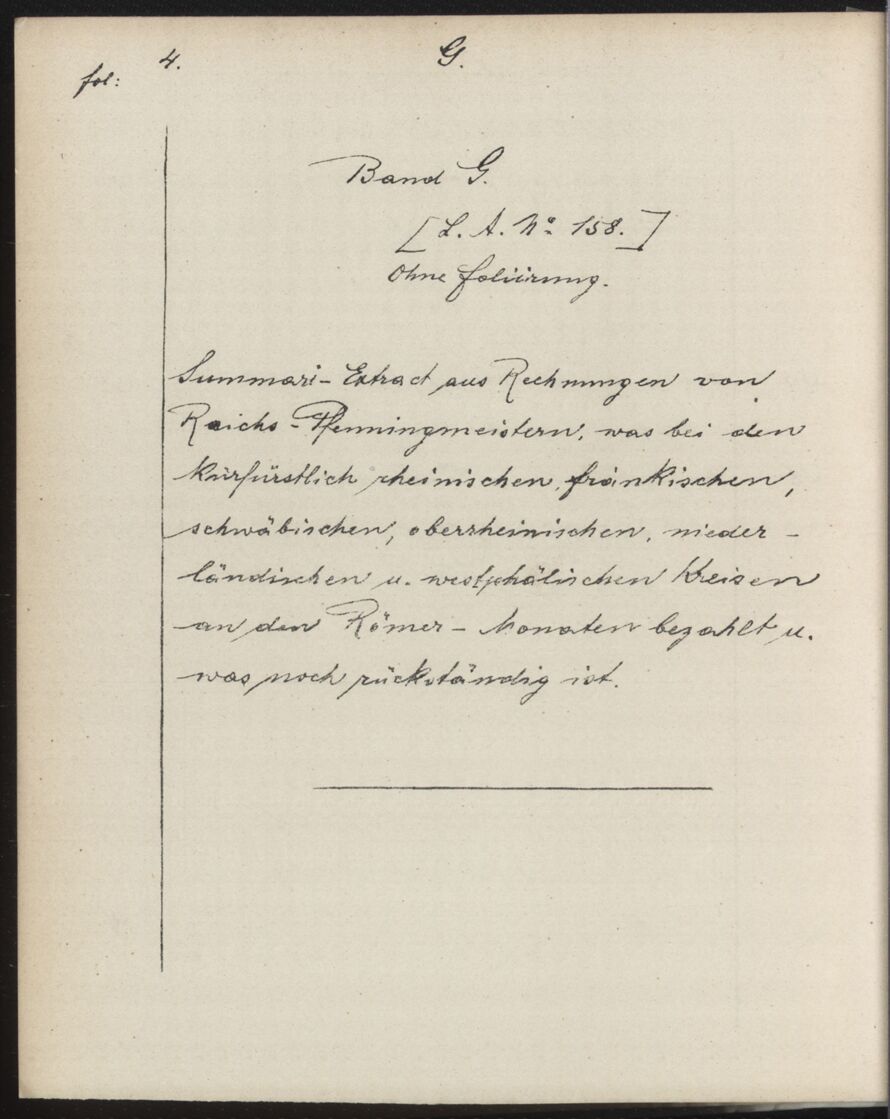 fol: 4. G.
Band G.
[L. A. No. 158.]
Ohne Foliirung.
Summari-Extract aus Rechnungen von
Reichs-Pfenningmeistern, was bei den
kurfürstlich rheinischen, fränkischen,
schwäbischen, oberrheinischen, nieder-
ländischen u. westphälischen Kreisen
an den Römer-Monaten bezahlt u.
was noch rückständig ist.